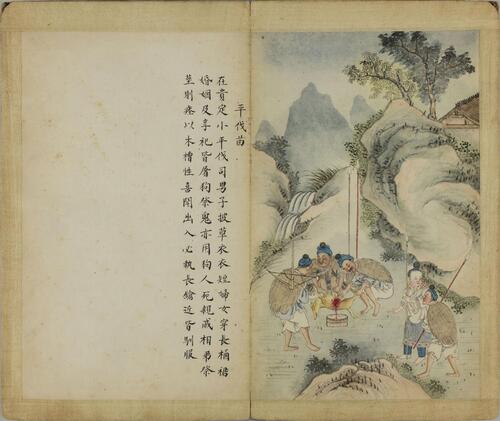 平伐苗
在貴定小平伐司男子披草衣衣短婦女穿長桶裙
婚姻及享祀皆屠狗祭鬼亦用狗人死親戚相弔祭
塟則瘞以木槽性喜鬪出入必執長鎗近皆馴服